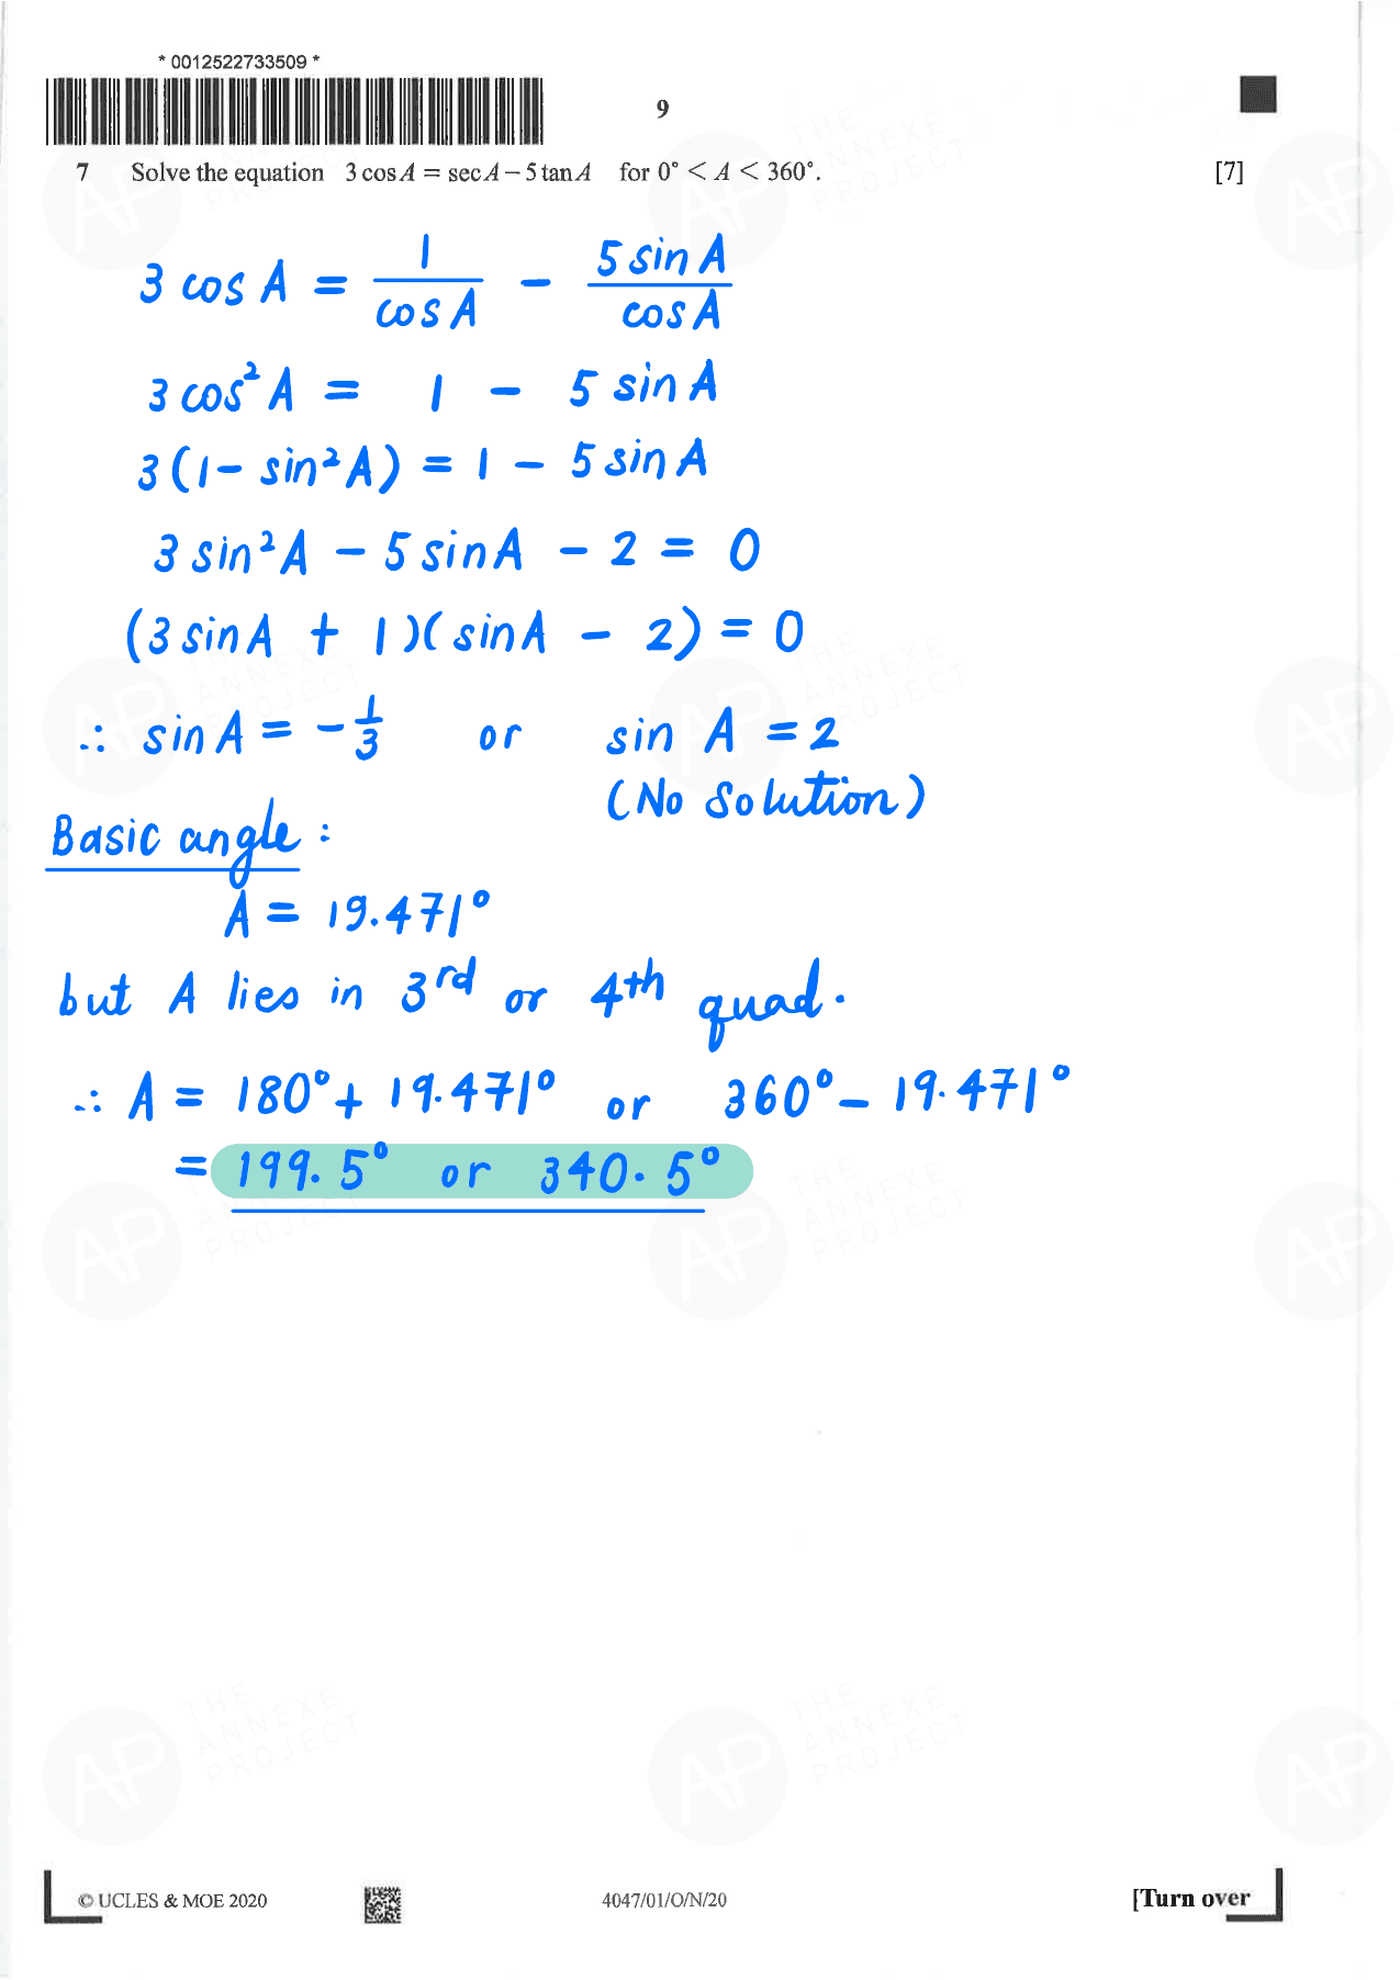 * 0012522733509 *
9
7 Solve the equation 3 cos A = sec A − 5 tan A for 0° < A < 360°. [7]
3 cos A = 1/cos A − 5 sin A/cos A
3 cos² A = 1 − 5 sin A
3(1 − sin² A) = 1 − 5 sin A
3 sin² A − 5 sin A − 2 = 0
(3 sin A + 1)(sin A − 2) = 0
∴ sin A = −1/3 or sin A = 2
(No Solution)
Basic angle :
A = 19.471°
but A lies in 3rd or 4th quad.
∴ A = 180° + 19.471° or 360° − 19.471°
= 199.5° or 340.5°
© UCLES & MOE 2020 4047/01/O/N/20 [Turn over
AP THE ANNEXE PROJECT